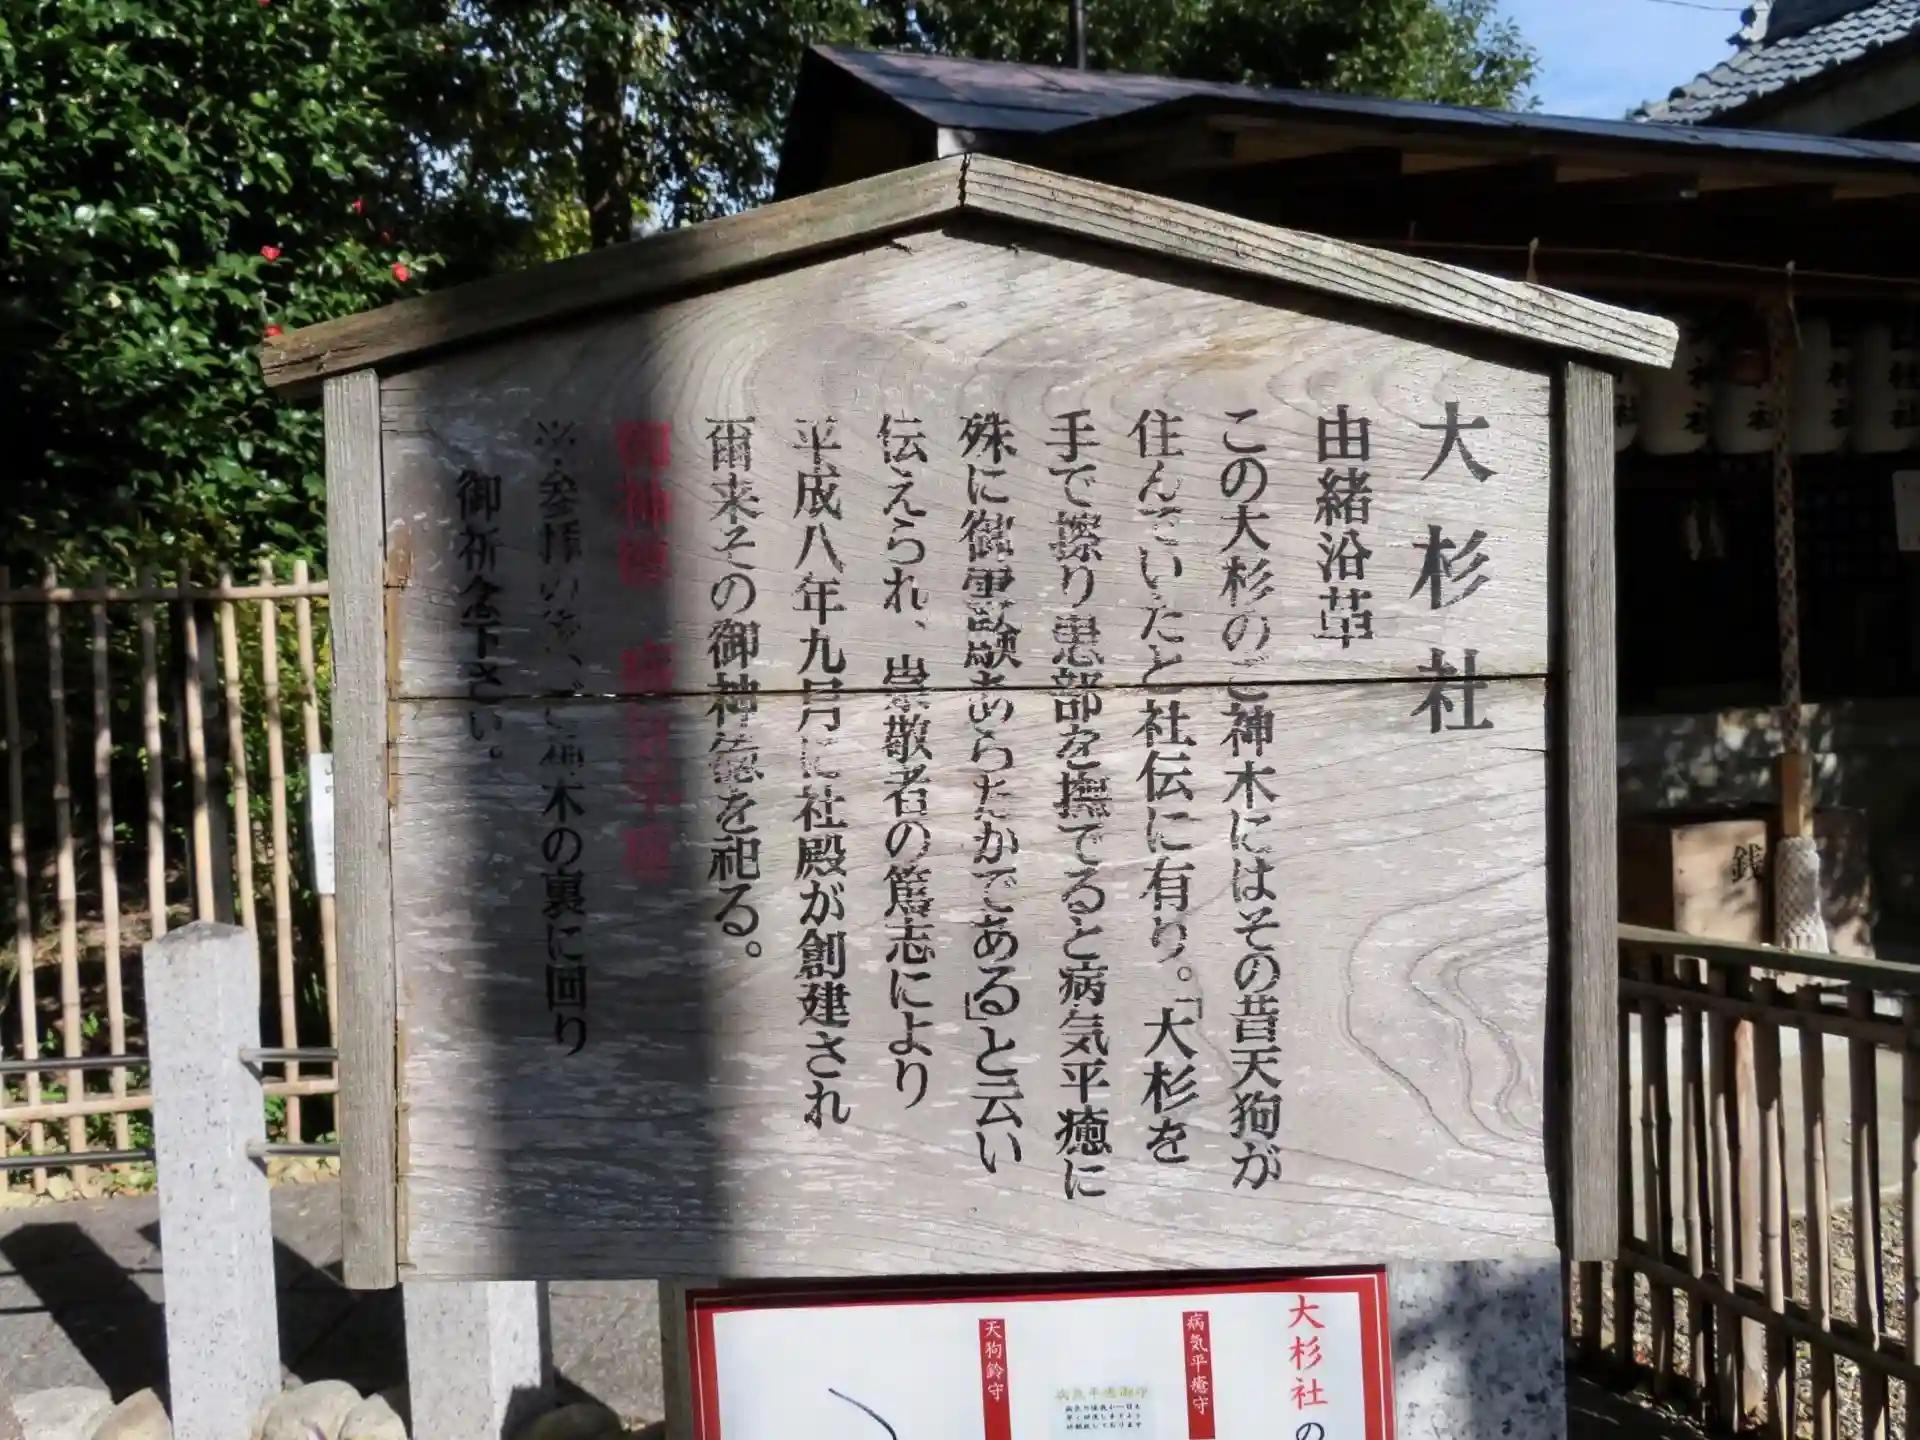 大杉社
由緒沿革
この大杉のご神木にはその昔天狗が
住んでいたと社伝に有り。「大杉を
手で擦り患部を撫でると病気平癒に
殊に御霊験あらたかである」と云い
伝えられ、崇敬者の篤志により
平成八年九月に社殿が創建され
爾来その御神徳を祀る。
御神徳 病気平癒
※参拝の後、ご神木の裏に回り
御祈念下さい。
大杉社の
病気平癒守
病気平癒御守
天狗鈴守
銭